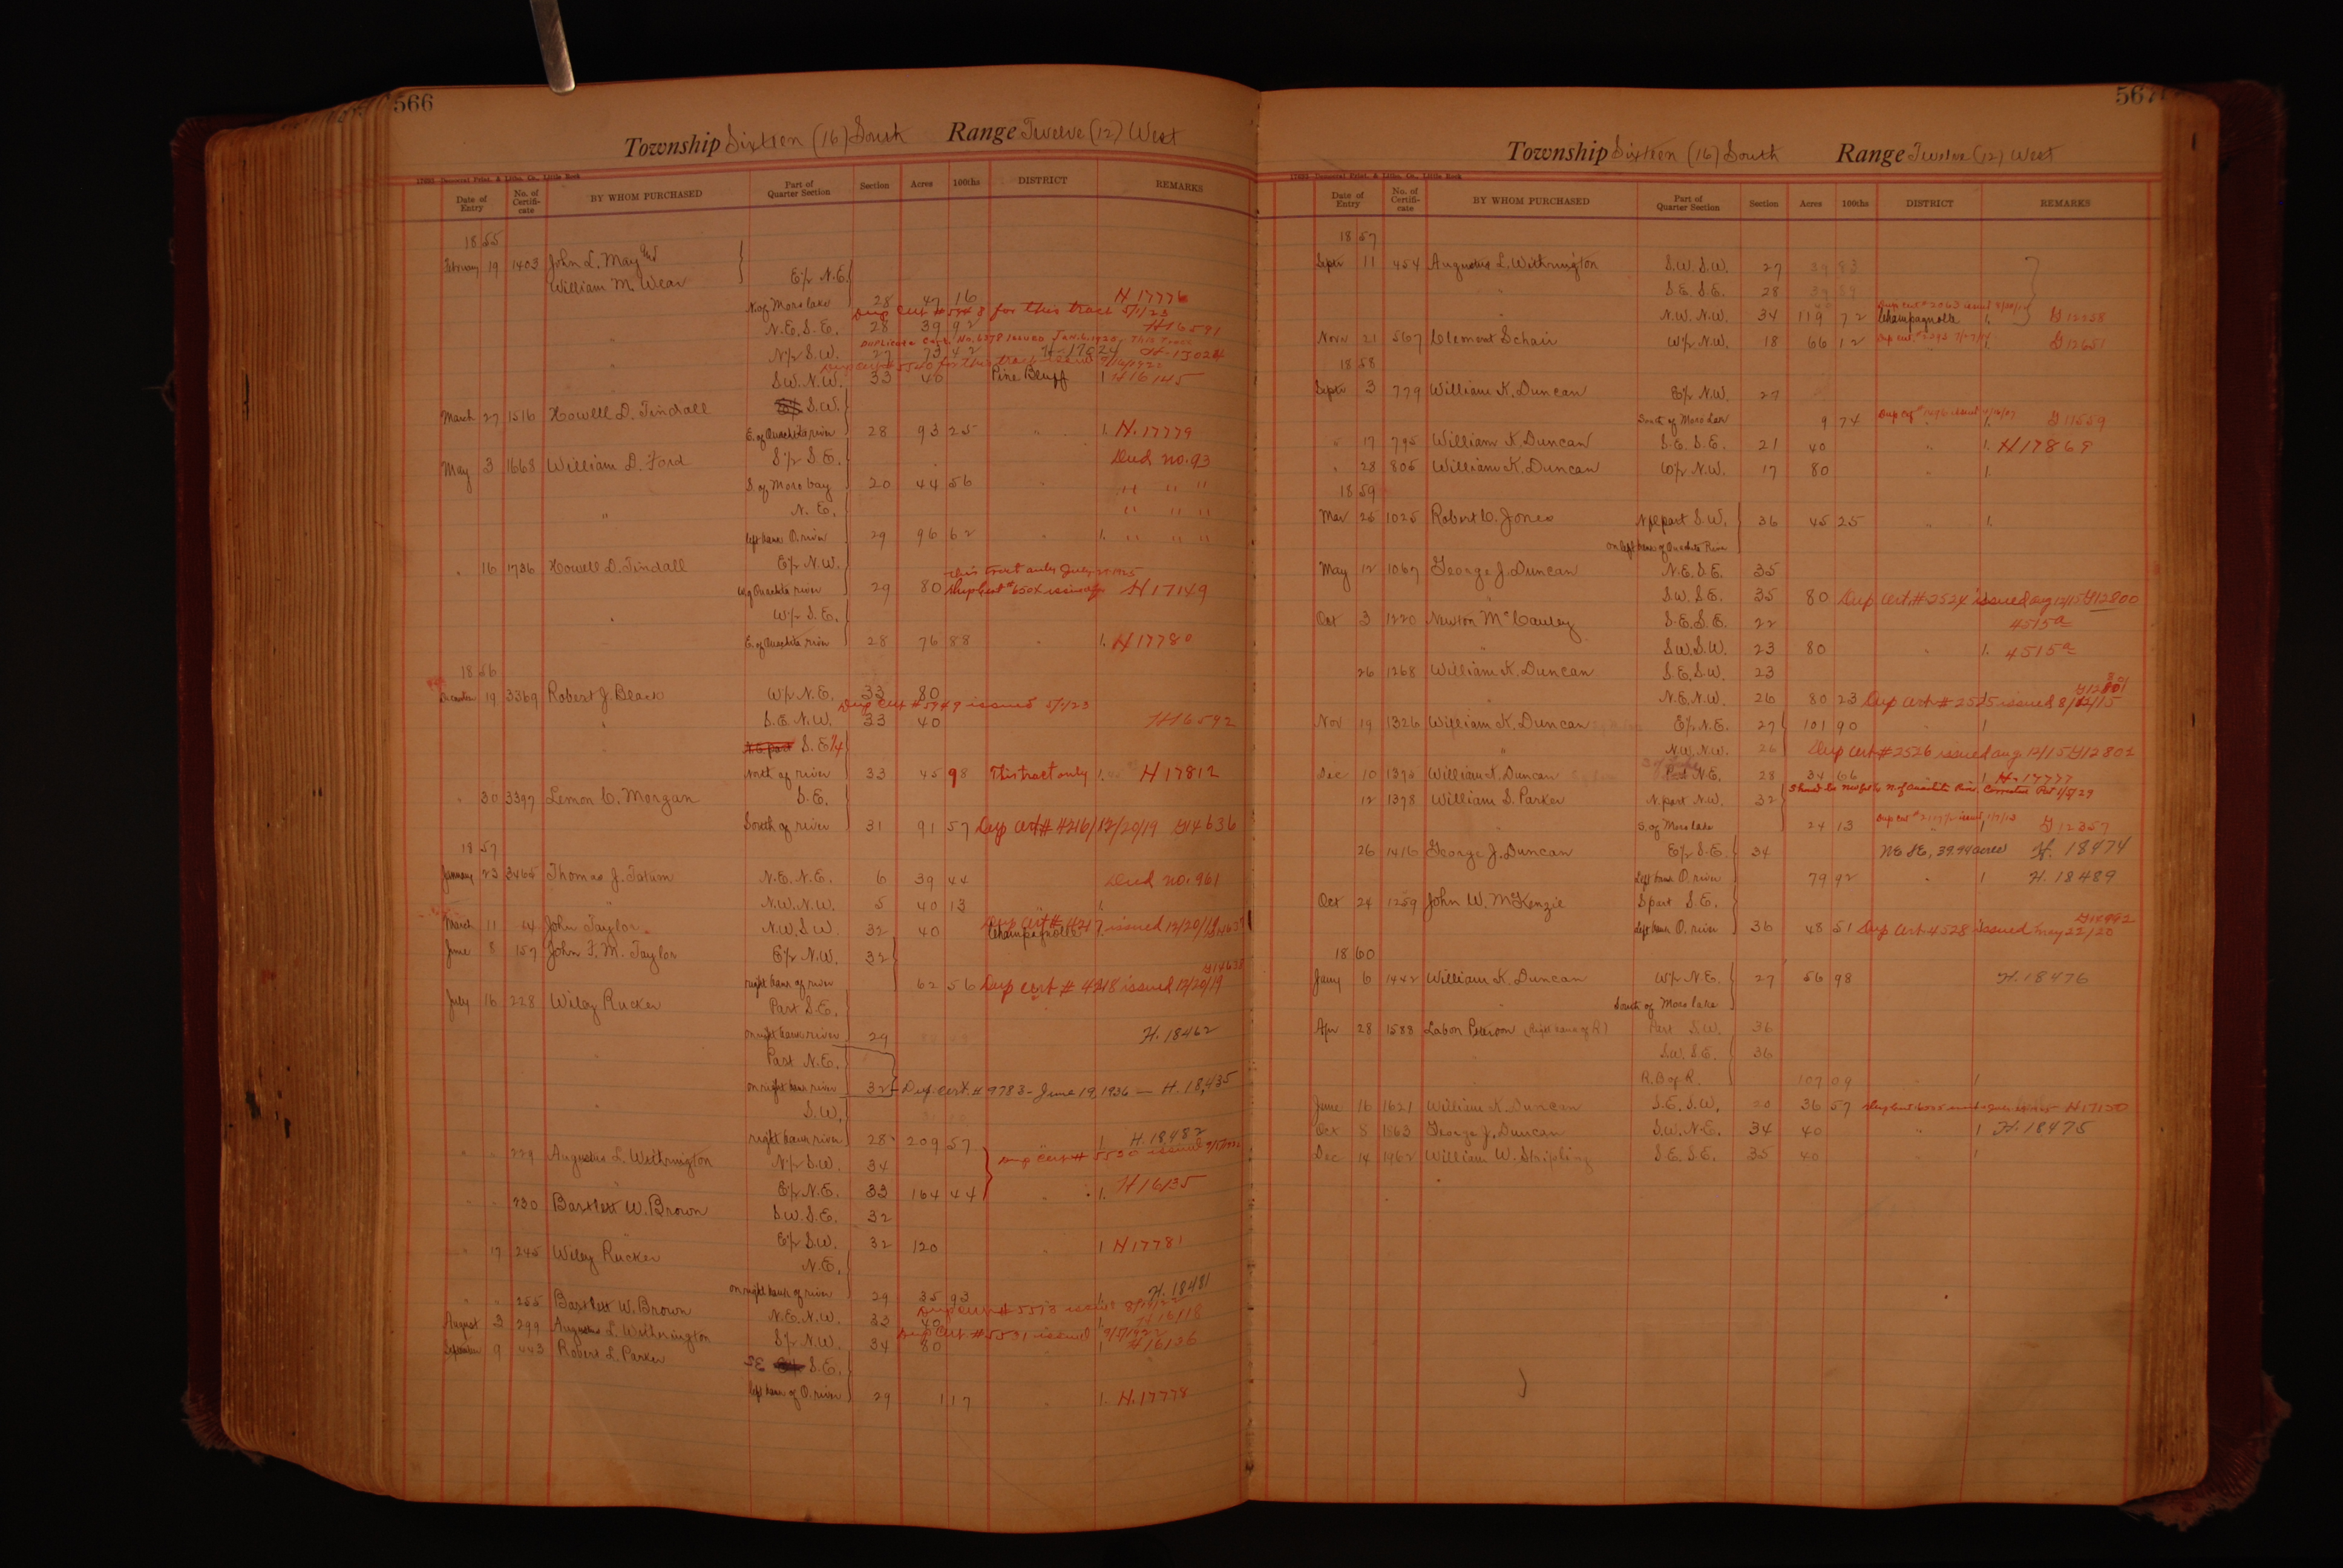 566
Township Sixteen (16) South Range Twelve (12) West
Date of Entry No. of Certifi-cate BY WHOM PURCHASED Part of Quarter Section Section Acres 100ths DISTRICT REMARKS
1855
February 19 1403 John L. May and
William M. Wear E½ N.E.
N. of Moro lake 28 47 16 H 17776
Dup Cert # 5948 for this tract 5/1/23
N.E. S.E. 28 39 92 H16591
Duplicate Cert. No. 6278 Issued Jan. 6, 1925 This Tract
N½ S.W. 27 79 42 H-17024 H-17024
for this tract issued
S.W. N.W. 33 40 Pine Bluff 1 H16145
March 27 1516 Howell D. Tindall S.W.
E. of Ouachita river 28 93 25 " 1. H. 17779
May 3 1668 William D. Ford S½ S.E. Deed no. 93
S. of Moro bay 20 44 56 " " " "
" N.E. " " "
left bank O. river 29 96 62 " 1. " " "
" 16 1736 Howell D. Tindall E½ N.W.
this tract only July
W of Ouachita river 29 80 Dup Cert # 6504 issued H 17149
" W½ S.E.
E. of Ouachita river 28 76 88 " 1. H 17780
1856
December 19 3369 Robert J. Black W½ N.E. 33 80
Dup Cert # 5949 issued 5/1/23
" S.E. N.W. 33 40 H16592
" N.E. part S.E ¼
North of river 33 45 98 This tract only 1. H 17812
" 30 3397 Lemon C. Morgan S.E.
South of river 31 91 57 Dup Cert # 4216 / 12/20/19 G14636
1857
January 23 3465 Thomas J. Tatum N.E. N.E. 6 39 44 Deed no. 961
" N.W. N.W. 5 40 13 " 1.
Dup Cert # 4217 issued 12/20/19
March 11 14 John Taylor N.W. S.W. 32 40 Champagnolle
June 8 157 John F. M. Taylor E½ N.W. 32 G14638
right bank of river 62 56 Dup Cert # 4218 issued 12/20/19
July 16 228 Wiley Rucker Part S.E.
on right bank river 29 H. 18462
" Part N.E.
on right bank river 32 Dup. Cert. # 9783 - June 19, 1936 — H. 18,435
" S.W.
right bank river 28 209 57 " 1. H. 18482
" " 229 Augustus L. Withrington N½ S.W. 34 Dup Cert # 5530 issued
" E½ N.E. 33 164 44 " 1. H16135
" " 230 Bartlett W. Brown S.W. S.E. 32
" E½ S.W. 32 120 " 1 H17781
" 17 245 Wiley Rucker N.E.
on right bank of river 29 35 93 1. H. 18481
Dup Cert # 5513 issued
" " 255 Bartlett W. Brown N.E. N.W. 33 40 1. H16118
Dup Cert. # 5531 issued 9/5/1922
August 3 299 Augustus L. Witherington S½ N.W. 34 80 1 H16136
September 9 443 Robert L. Parker SE S.E.
left bank of O. river 29 1 17 " 1. H. 17778
567
Township Sixteen (16) South Range Twelve (12) West
Date of Entry No. of Certifi-cate BY WHOM PURCHASED Part of Quarter Section Section Acres 100ths DISTRICT REMARKS
1857
Septr 11 454 Augustus L. Withrington S.W. S.W. 27 39 83
" S.E. S.E. 28 39 89
" N.W. N.W. 34 119 72 Champagnolle 1. G 12258
Novr 21 567 Clement Schair W½ N.W. 18 66 12 1. G 12651
1858
Septr 3 779 William K. Duncan E½ N.W. 27
South of Moro Lake 9 74 " 1.
" 17 795 William K. Duncan S.E. S.E. 21 40 " 1. H17869
" 28 805 William K. Duncan W½ N.W. 17 80 " 1.
1859
Mar 26 1025 Robert C. Jones N pt part S.W. 36 45 25 " 1.
on left bank of Ouachita River
May 12 1067 George J. Duncan N.E. S.E. 35
" S.W. S.E. 35 80 Dup Cert. # 2524 issued aug 12/15 G12800
Oct 3 1220 Newton McCauley S.E. S.E. 22 4515a
" S.W. S.W. 23 80 " 1. 4515a
26 1268 William K. Duncan S.E. S.W. 23
" N.E. N.W. 26 80 23 Dup Cert # 2525 issued 8/12/15 G12801
Nov 19 1326 William K. Duncan E½ N.E. 27 101 90 " 1
" N.W. N.W. 26 Dup Cert # 2526 issued aug 12/15 G12802
Dec 10 1373 William K. Duncan Part N.E. 28 34 66 1 H. 17777
12 1378 William S. Parker N. part N.W. 32
S. of Moro lake 24 13 " 1 G 12357
26 1416 George J. Duncan E½ S.E. 34 NE SE, 39.94 acres H. 18474
Left bank O. river 79 92 " 1 H. 18489
Oct 24 1259 John W. McKenzie S part S.E.
Left bank O. river 36 48 51 Dup Cert 4528 issued may 22/20
1860
Jany 6 1442 William K. Duncan W½ N.E. 27 56 98 H. 18476
South of Moro lake
Apr 28 1588 Labon Peterson (Right bank of R) Part S.W. 36
" S.W. S.E. 36
R. B of R. 107 09 1
June 16 1621 William K. Duncan S.E. S.W. 20 36 57 H17150
Oct 8 1863 George J. Duncan S.W. N.E. 34 40 " 1 H. 18475
Dec 14 1962 William W. Stripling S.E. S.E. 35 40 " 1